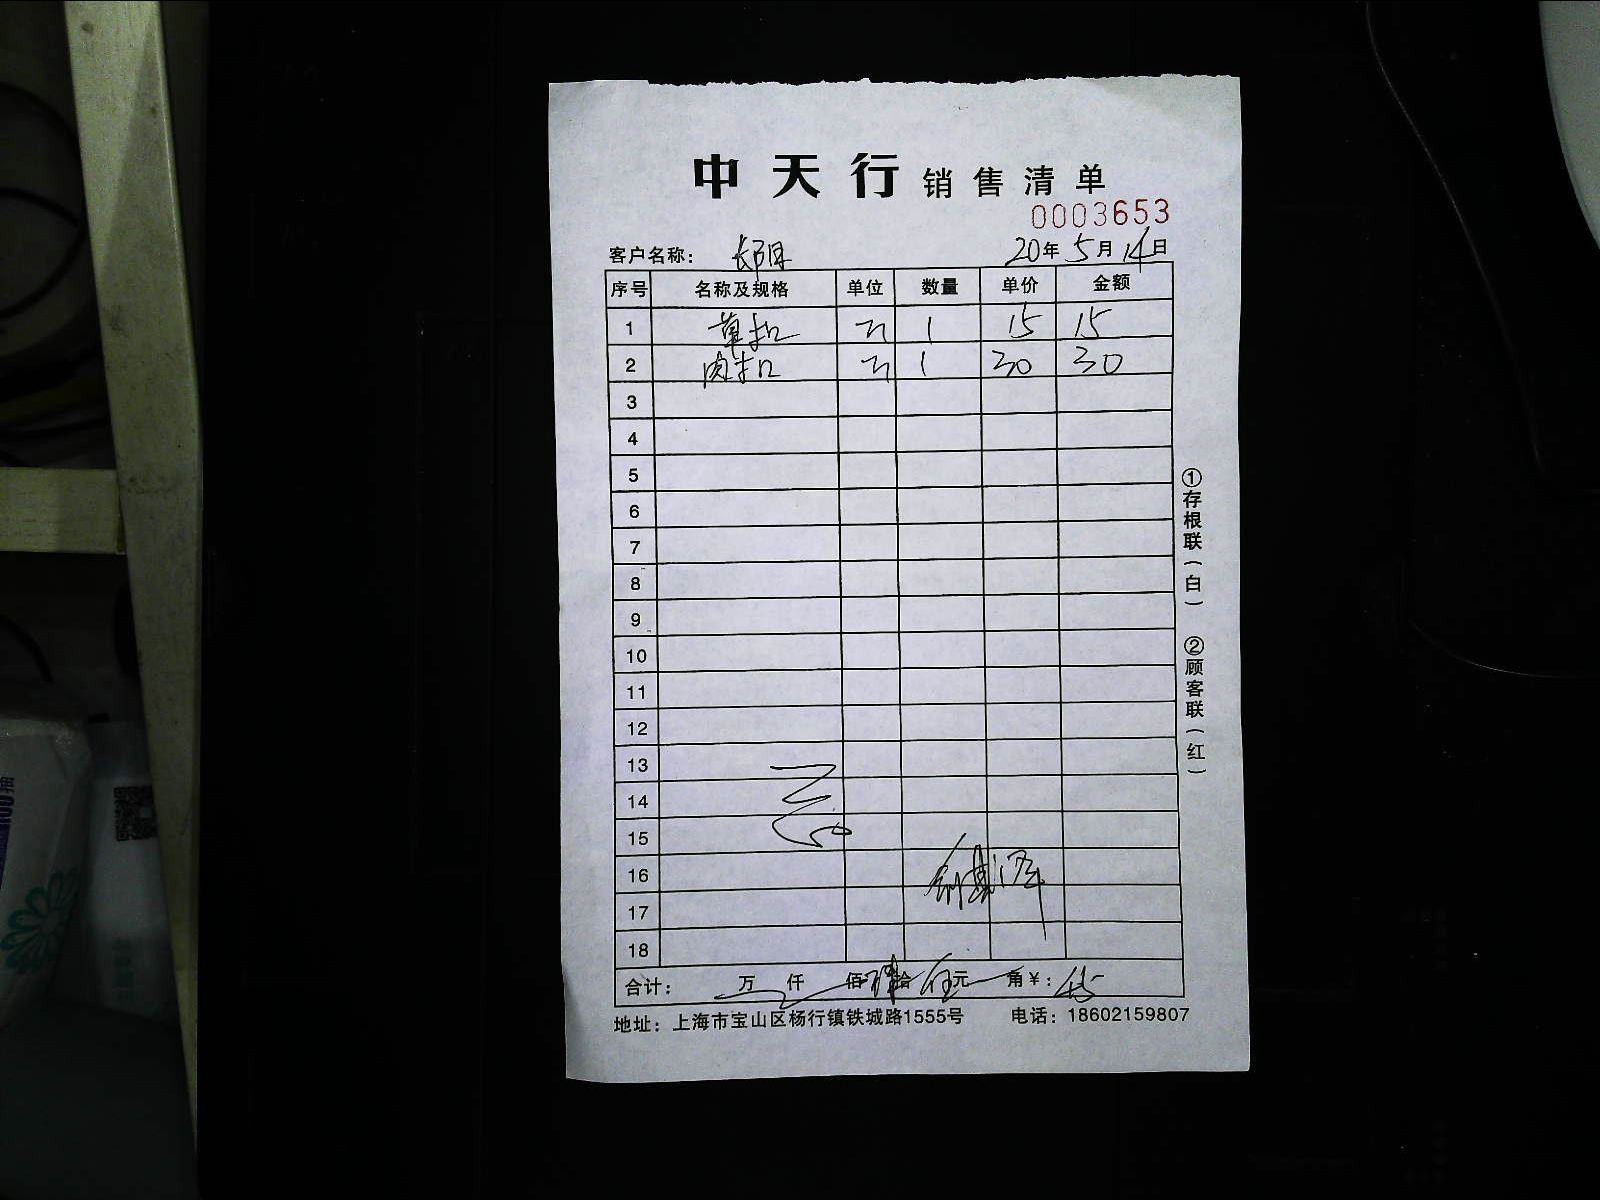 中天行 销售清单
0003653
客户名称： 20年5月14日
序号 名称及规格 单位 数量 单价 金额
1 草扣 斤 1 15 15
2 肉扣 斤 1 30 30
3
4
5
6
7
8
9
10
11
12
13
14
15
16
17
18
合计： 万 仟 佰 肆拾 伍元 角￥：45
地址：上海市宝山区杨行镇铁城路1555号 电话：18602159807
①存根联（白）
②顾客联（红）